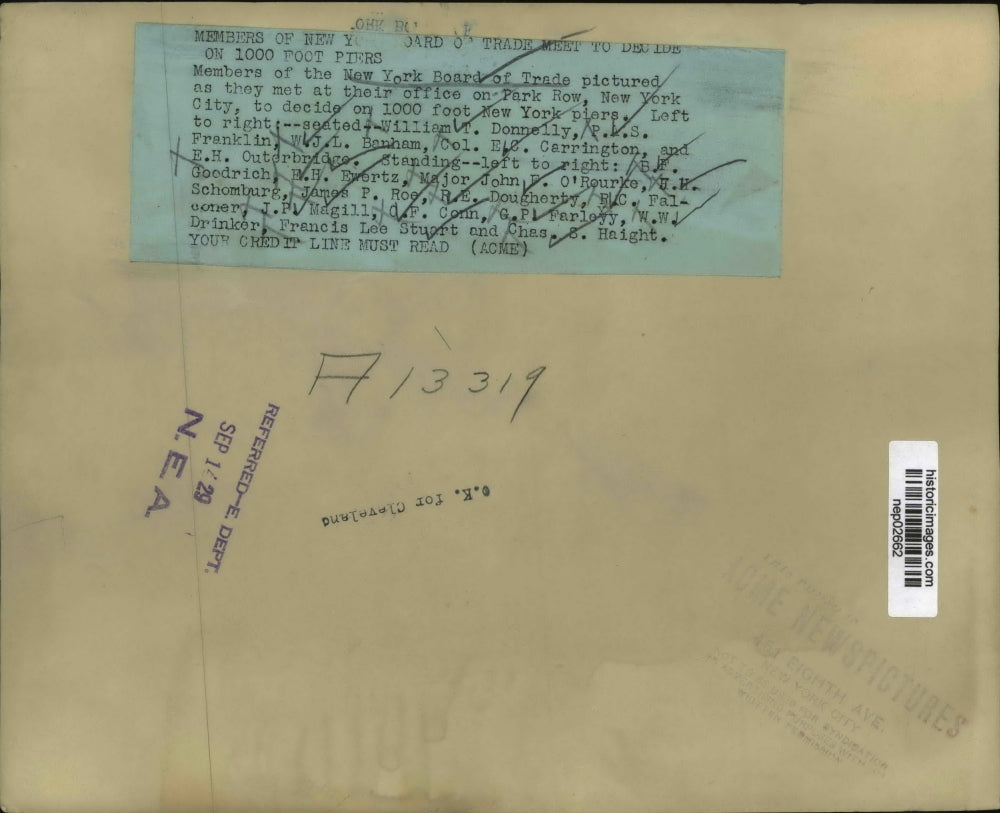 MEMBERS OF NEW Y ARD O TRADE MEET TO DECIDE
ON 1000 FOOT PIERS
Members of the New York Board of Trade pictured
as they met at their office on Park Row, New York
City, to decide on 1000 foot New York piers. Left
to right:--seated--William T. Donnelly, P.L.S.
Franklin, W.J.L. Banham, Col. E.C. Carrington, and
E.H. Outerbridge. Standing--left to right: B.F.
Goodrich, E.H. Ewertz, Major John F. O'Rourke, H.H.
Schomburg, James P. Roe, R.E. Dougherty, R.C. Fal-
coner, J.P. Magill, C.F. Conn, G.P. Farleyy, W.W.
Drinker, Francis Lee Stuart and Chas. S. Haight.
YOUR CREDIT LINE MUST READ (ACME)
A 13319
REFERRED-E. DEPT.
SEP 29
N.E.A.
O.K. for Cleveland
historicimages.com
nep02662
ACME NEWSPICTURES
461 EIGHTH AVE.
NEW YORK CITY
NOT TO BE USED FOR SYNDICATION
WRITTEN PERMISSION